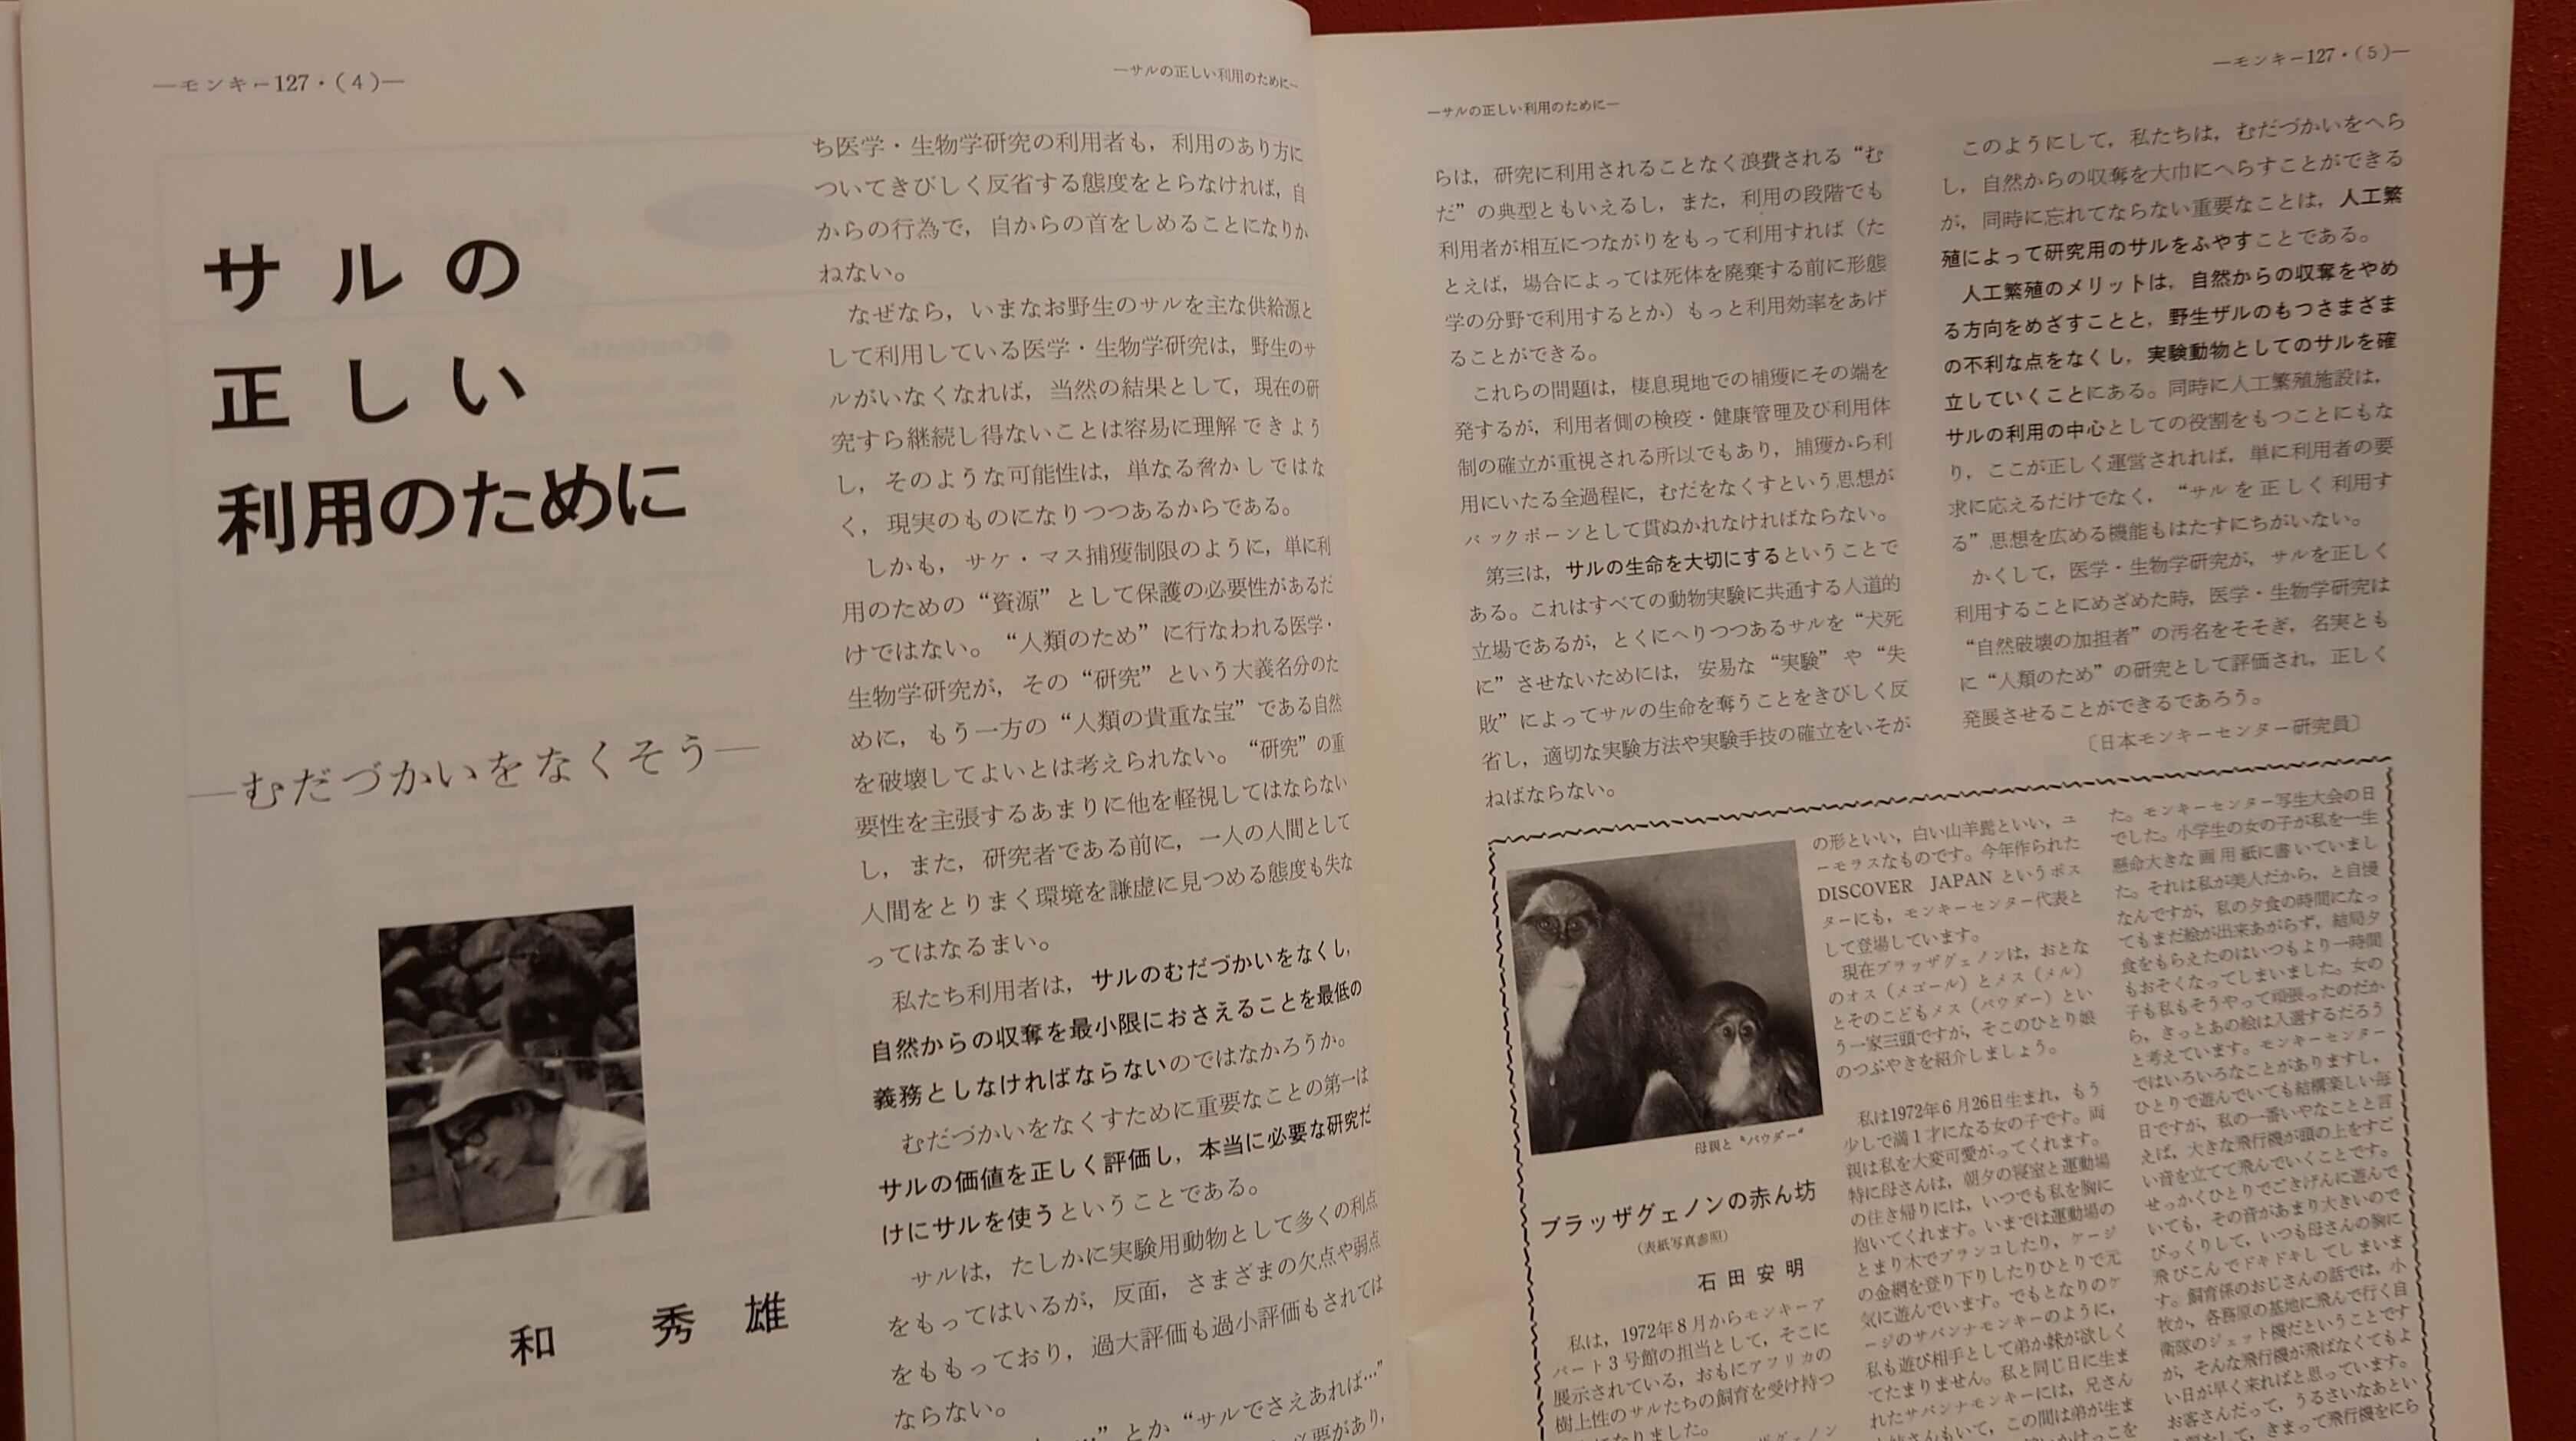 —モンキー127・(4)—
—サルの正しい利用のために—
サルの
正しい
利用のために
—むだづかいをなくそう—
和 秀雄
ち医学・生物学研究の利用者も，利用のあり方に
ついてきびしく反省する態度をとらなければ，自
からの行為で，自からの首をしめることになりか
ねない。
なぜなら，いまなお野生のサルを主な供給源と
して利用している医学・生物学研究は，野生のサ
ルがいなくなれば，当然の結果として，現在の研
究すら継続し得ないことは容易に理解できよう
し，そのような可能性は，単なる脅かしではな
く，現実のものになりつつあるからである。
しかも，サケ・マス捕獲制限のように，単に利
用のための“資源”として保護の必要性があるだ
けではない。“人類のため”に行なわれる医学・
生物学研究が，その“研究”という大義名分のた
めに，もう一方の“人類の貴重な宝”である自然
を破壊してよいとは考えられない。“研究”の重
要性を主張するあまりに他を軽視してはならない
し，また，研究者である前に，一人の人間として
人間をとりまく環境を謙虚に見つめる態度も失な
ってはなるまい。
私たち利用者は，サルのむだづかいをなくし，
自然からの収奪を最小限におさえることを最低の
義務としなければならないのではなかろうか。
むだづかいをなくすために重要なことの第一は
サルの価値を正しく評価し，本当に必要な研究だ
けにサルを使うということである。
サルは，たしかに実験用動物として多くの利点
をもってはいるが，反面，さまざまの欠点や弱点
をももっており，過大評価も過小評価もされては
ならない。
…”とか“サルでさえあれば…”
必要があり，
—モンキー127・(5)—
—サルの正しい利用のために—
らは，研究に利用されることなく浪費される“む
だ”の典型ともいえるし，また，利用の段階でも
利用者が相互につながりをもって利用すれば（た
とえば，場合によっては死体を廃棄する前に形態
学の分野で利用するとか）もっと利用効率をあげ
ることができる。
これらの問題は，棲息現地での捕獲にその端を
発するが，利用者側の検疫・健康管理及び利用体
制の確立が重視される所以でもあり，捕獲から利
用にいたる全過程に，むだをなくすという思想が
バックボーンとして貫ぬかれなければならない。
第三は，サルの生命を大切にするということで
ある。これはすべての動物実験に共通する人道的
立場であるが，とくにへりつつあるサルを“犬死
に”させないためには，安易な“実験”や“失
敗”によってサルの生命を奪うことをきびしく反
省し，適切な実験方法や実験手技の確立をいそが
ねばならない。
このようにして，私たちは，むだづかいをへら
し，自然からの収奪を大巾にへらすことができる
が，同時に忘れてならない重要なことは，人工繁
殖によって研究用のサルをふやすことである。
人工繁殖のメリットは，自然からの収奪をやめ
る方向をめざすことと，野生ザルのもつさまざま
の不利な点をなくし，実験動物としてのサルを確
立していくことにある。同時に人工繁殖施設は，
サルの利用の中心としての役割をもつことにもな
り，ここが正しく運営されれば，単に利用者の要
求に応えるだけでなく，“サルを正しく利用す
る”思想を広める機能もはたすにちがいない。
かくして，医学・生物学研究が，サルを正しく
利用することにめざめた時，医学・生物学研究は
“自然破壊の加担者”の汚名をそそぎ，名実とも
に“人類のため”の研究として評価され，正しく
発展させることができるであろう。
〔日本モンキーセンター研究員〕
母親と“パウダー”
ブラッザグェノンの赤ん坊
（表紙写真参照）
石田安明
私は，1972年8月からモンキーア
パート3号館の担当として，そこに
展示されている，おもにアフリカの
樹上性のサルたちの飼育を受け持つ
になりました。
の形といい，白い山羊髭といい，ユ
ーモラスなものです。今年作られた
DISCOVER JAPANというポス
ターにも，モンキーセンター代表と
して登場しています。
現在ブラッザグェノンは，おとな
のオス（メゴール）とメス（メル）
とそのこどもメス（パウダー）とい
う一家三頭ですが，そこのひとり娘
のつぶやきを紹介しましょう。
私は1972年6月26日生まれ，もう
少しで満1才になる女の子です。両
親は私を大変可愛がってくれます。
特に母さんは，朝夕の寝室と運動場
の往き帰りには，いつでも私を胸に
抱いてくれます。いまでは運動場の
とまり木でブランコしたり，ケージ
の金網を登り下りしたりひとりで元
気に遊んでいます。でもとなりのケ
ージのサバンナモンキーのように，
私も遊び相手として弟か妹が欲しく
てたまりません。私と同じ日に生ま
れたサバンナモンキーには，兄さん
もいて，この間は弟が生ま
た。モンキーセンター写生大会の日
でした。小学生の女の子が私を一生
懸命大きな画用紙に書いていまし
た。それは私が美人だから，と自慢
なんですが，私の夕食の時間になっ
てもまだ絵が出来あがらず，結局夕
食をもらえたのはいつもより一時間
もおそくなってしまいました。女の
子も私もそうやって頑張ったのだか
ら，きっとあの絵は入選するだろう
と考えています。モンキーセンター
ではいろいろなことがありますし，
ひとりで遊んでいても結構楽しい毎
日ですが，私の一番いやなことと言
えば，大きな飛行機が頭の上をすご
い音を立てて飛んでいくことです。
せっかくひとりでごきげんに遊んで
いても，その音があまり大きいので
びっくりして，いつも母さんの胸に
飛びこんでドキドキしてしまいま
す。飼育係のおじさんの話では，小
牧か，各務原の基地に飛んで行く自
衛隊のジェット機だということです
が，そんな飛行機が飛ばなくてもよ
い日が早く来ればと思っています。
お客さんだって，うるさいなあとい
きまって飛行機をにら